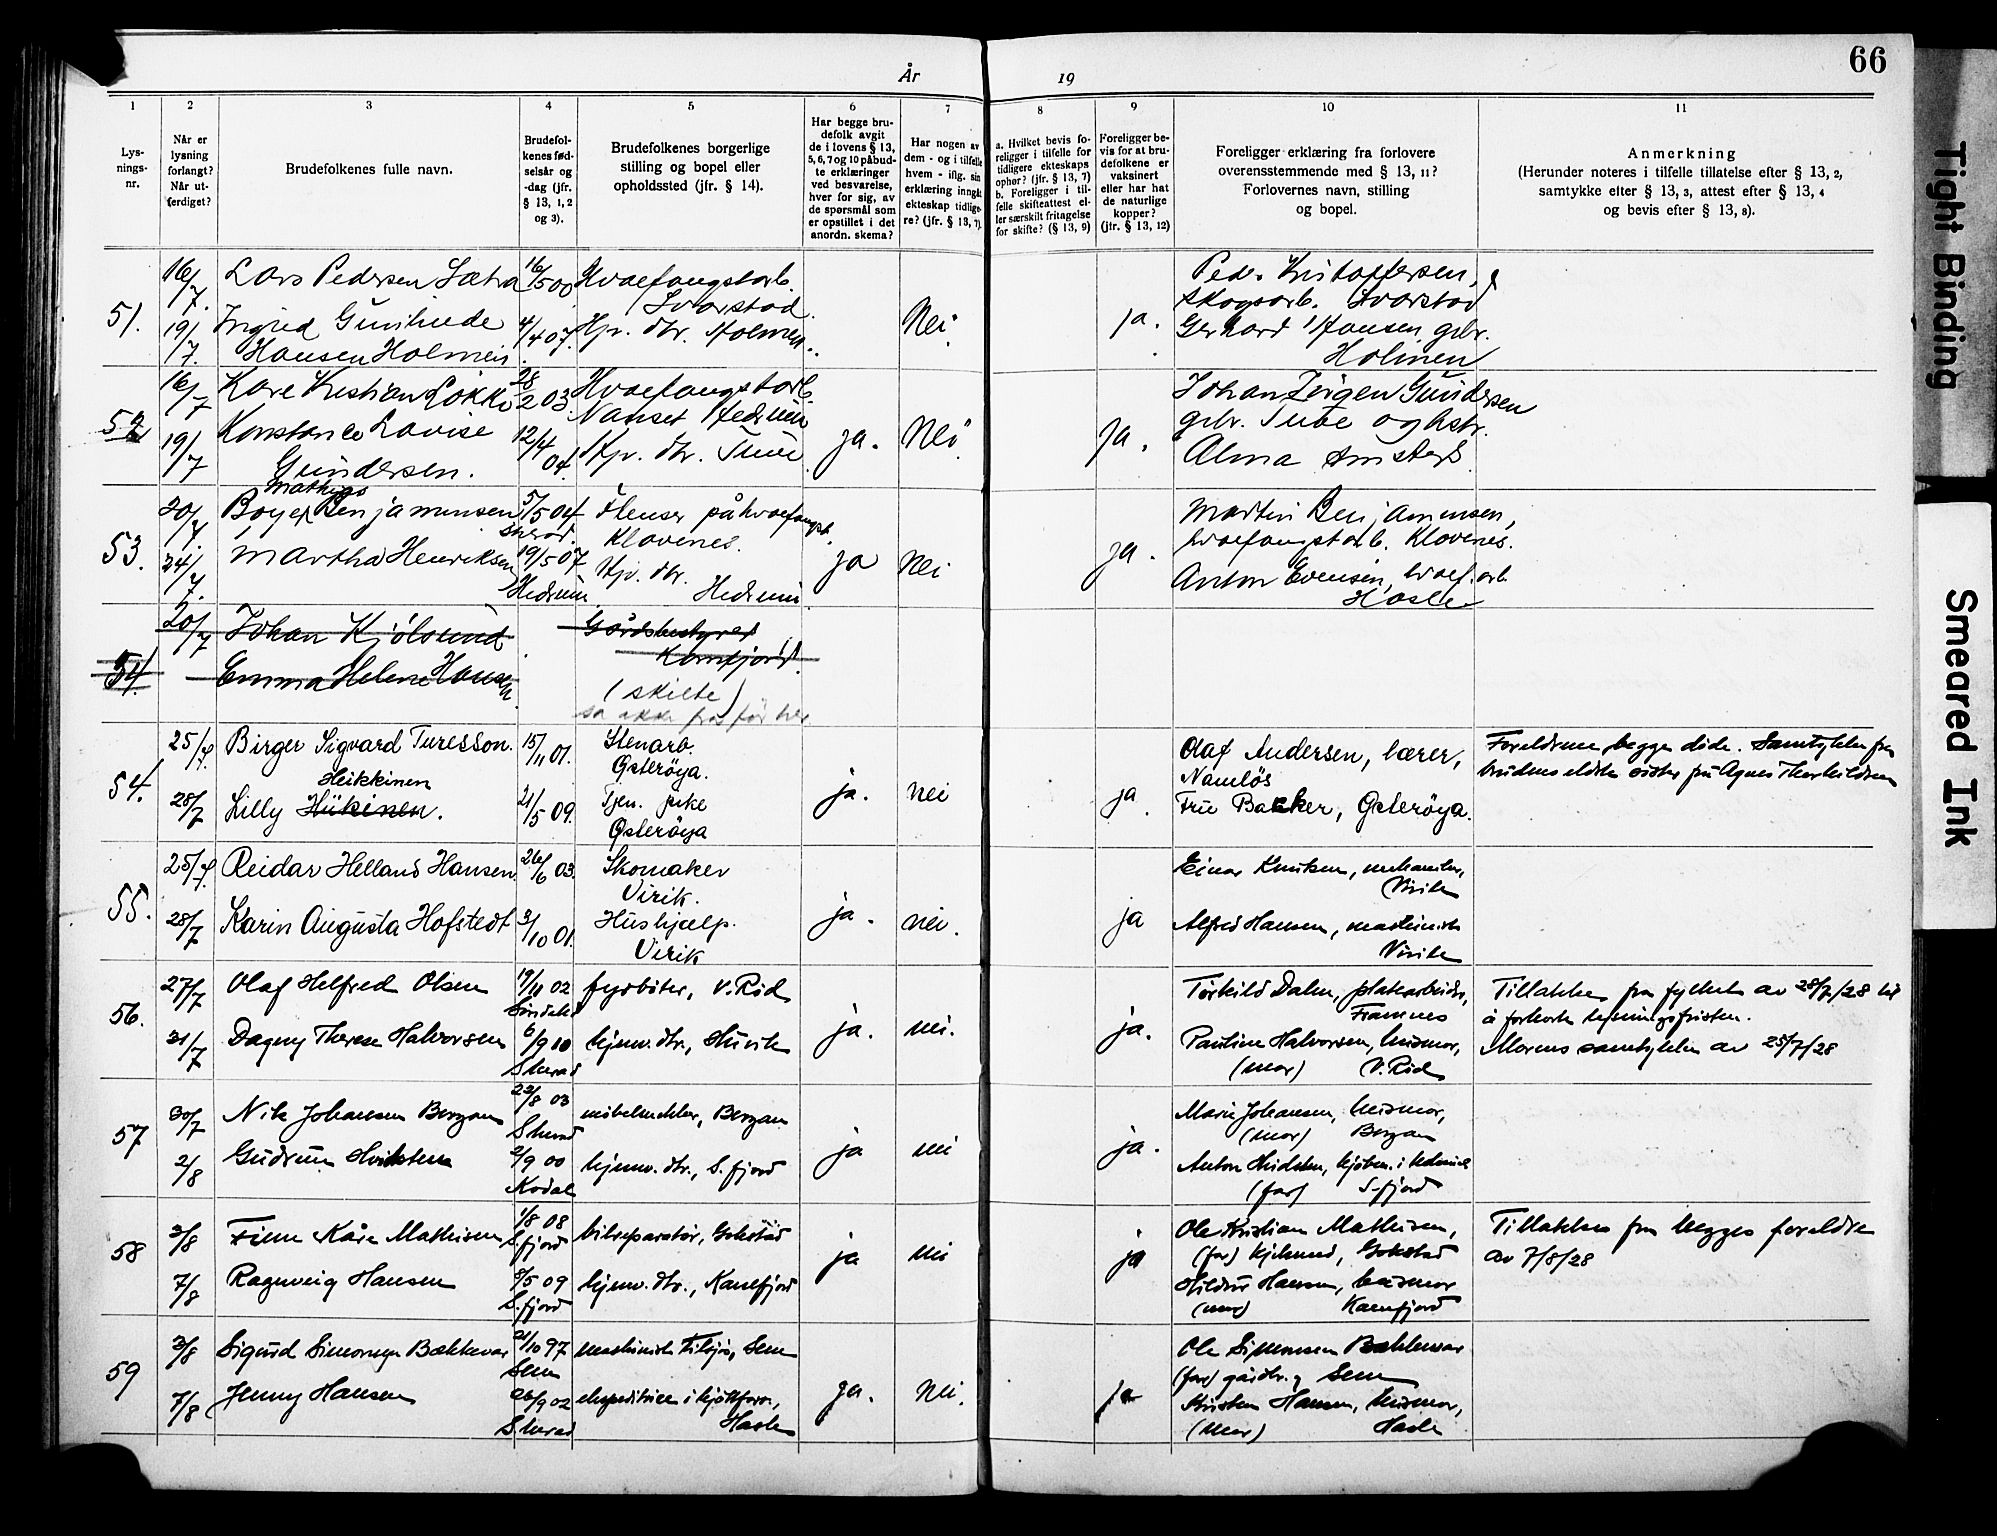 66
År 19
1 2 3 4 5 6 7 8 9 10 11
Lys-
nings-
nr.
Når er
lysning
forlangt?
Når ut-
ferdiget?
Brudefolkenes fulle navn.
Brudefol-
kenes fød-
selsår og
-dag (jfr.
§ 13, 1, 2
og 3).
Brudefolkenes borgerlige
stilling og bopel eller
opholdssted (jfr. § 14).
Har begge bru-
defolk avgit
de i lovens § 13,
5, 6, 7 og 10 påbud-
te erklæringer
ved besvarelse,
hver for sig, av
de spørsmål som
er opstillet i det
anordn. skema?
Har nogen av
dem - og i tilfelle
hvem - iflg. sin
erklæring inngåt
ekteskap tidlige-
re? (jfr. § 13, 7)
a. Hvilket bevis fo-
religger i tilfelle for
tidligere ekteskaps
ophør? (jfr. § 13, 7)
b. Foreligger i til-
felle skifteattest el-
ler særskilt fritagelse
for skifte? (§ 13, 9)
Foreligger be-
vis for at bru-
defolkene er
vaksinert
eller har hat
de naturlige
kopper?
(jfr. § 13, 12)
Foreligger erklæring fra forlovere
overensstemmende med § 13, 11?
Forlovernes navn, stilling
og bopel.
Anmerkning
(Herunder noteres i tilfelle tillatelse efter § 13, 2,
samtykke efter § 13, 3, attest efter § 13, 4
og bevis efter § 13, 8).
51.
16/7.
19/7.
Lars Pedersen Sætra
Ingrid
Hansen Holmen.
16/5 00
4/4 07.
Hvalfangstarb.
Svarstad.
Hjv. dtr. Holmen.
Nei.
ja.
Peder Kristoffersen,
skogsarb. Svarstad
Gerhard Hansen, grbr.
Holmen
52
16/7
19/7
Kåre Kristian Løkke
Konstance Lovise
Gundersen.
28/2 03.
12/4 04.
Hvalfangstarb.
Nanset Hedrum
Hjv. dtr.
ja.
Nei.
ja.
Johan Jørgen Gundersen
grbr. og hstr.
Alma
53.
20/7
24/7.
Mathias
Boye Benjaminsen
Martha Henriksen
5/5 04
Sherad.
19/5 07
Hedrum
Flenser på hvalfangst.
Klavenes.
Hjv. dtr.
Hedrum.
ja
Nei
ja.
Martin Benjaminsen,
hvalfangstarb. Klavenes.
Anton Evensen, hvalf. arb.
Hasle
54.
20/7
Johan Kjølsund
Emma Helene Hansen
Gårdsbestyrer
Kamfjord.
(skilte)
54.
25/7.
28/7
Birger Sigvard Turesson.
Heikkinen
Lilly Hükinen.
15/11 01.
21/5 09.
Stenarb.
Østerøya.
Tjen. pike
Østerøya
ja.
nei
ja.
Olaf Andersen, lærer,
Namløs
Fru Bakker, Østerøya.
Foreldrene begge døde. Samtykke fra
brudens eldste søster fru Agnes Thorkildsen
55.
25/7.
28/7
Reidar Helland Hansen.
Karin Augusta Hofstedt
26/6 03.
3/10 01.
Skomaker
Virik.
Hushjælp.
Virik
ja.
nei.
ja
Einar Knutsen, mekaniker,
Virik
Alfred Hansen, maskinist
Virik
56.
27/7
31/7
Olaf Helfred Olsen
Dagny Therese Halvorsen
19/11 02
6/9 10
Sherad
fyrbøter, V. Rød
hjemv. dtr., Huvik
ja.
nei.
ja.
Torkild Dalen, platearbeider,
Framnes
Pauline Halvorsen, husmor,
(mor) V. Rød
Tillatelse fra fylket av 28/7/28 til
å forkorte lysningsfristen.
Morens samtykke av 25/7/28
57
30/7
2/8
Nils Johansen Bergan
Gudrun Hvidsten
22/8 03
Sherad
2/9 00
Kodal
møbelsnekker, Bergan
hjemv. dtr., S. fjord
ja
nei
ja.
Marie Johansen, husmor,
(mor) Bergan
Anton Hvidsten,
(far) S-fjord
58
3/8
7/8
Finn Kåre Mathisen
Ragnveig Hansen
1/8 08
S. fjord
8/5 09
S. fjord
bilreparatør, Gokstad
hjemv. dtr., Kamfjord
ja
nei
ja
Ole Kristian Mathisen,
(far) Gokstad
Hildur Hansen, husmor
(mor) Kamfjord
Tillatelse fra begges foreldre
av 7/8/28
59
3/8
7/8
Sigurd Simonsen Bækkevar
Jenny Hansen
21/10 97
Sem
26/9 02
Sherad
maskinist Sem
ekspeditrice i kjøttforr.,
Hasle
ja.
Nei.
ja
Ole Simonsen Bækkevar
(far) gårdbr., Sem
Kristine Hansen, husmor,
(mor) Hasle
Tight Binding
Smeared Ink